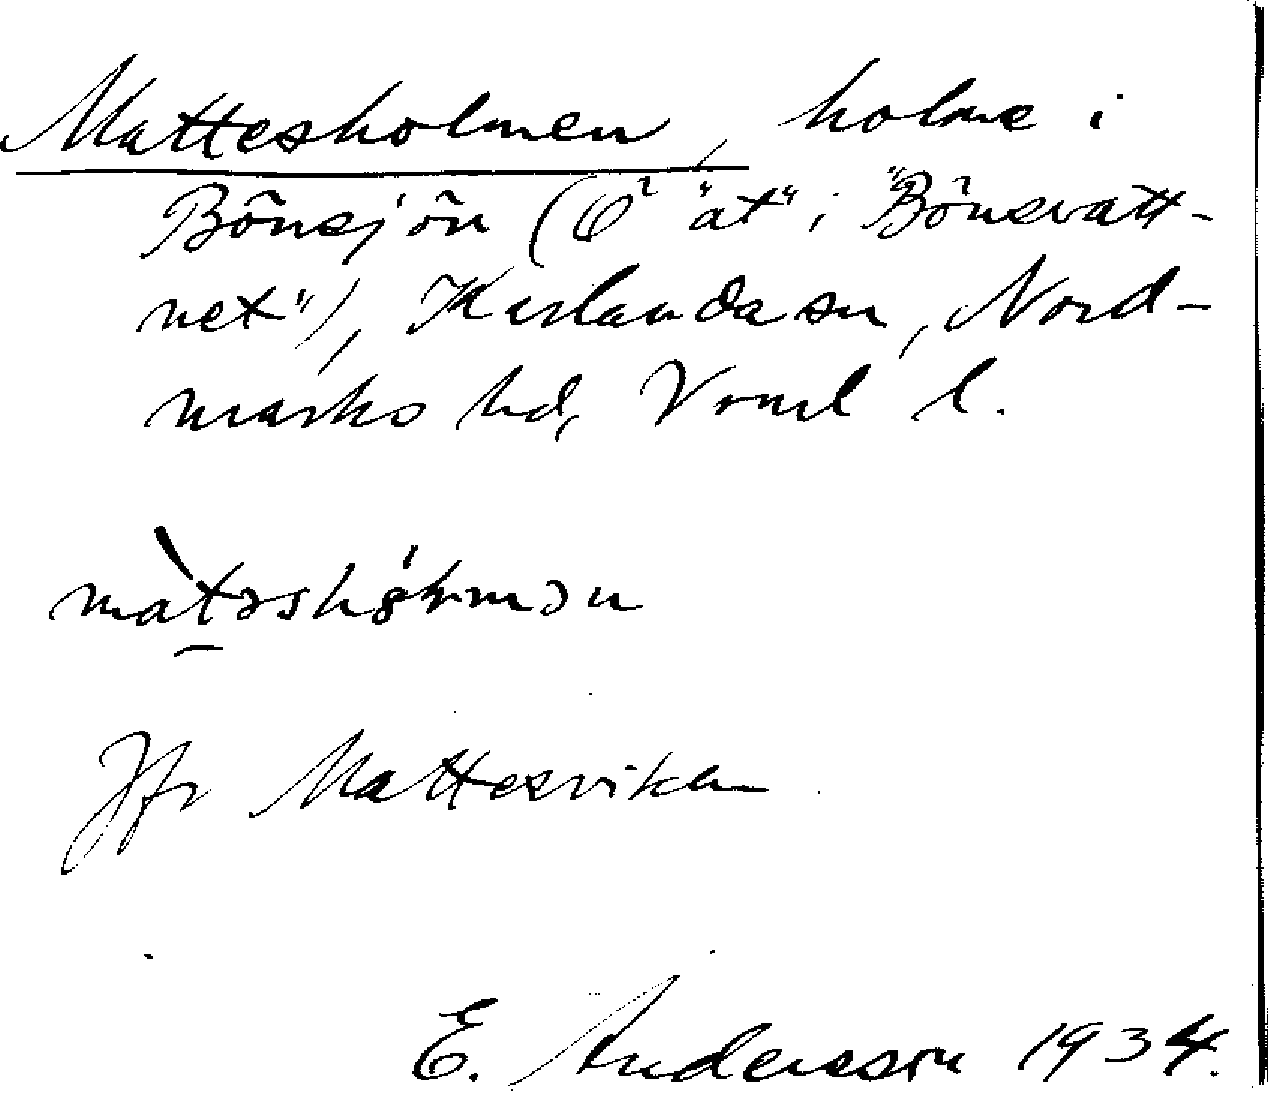 Mattesholmen, holme i
Bönsjön (Ö "ät" i "Bönsvatt-
net"), Karlanda sn, Nord-
marks hd, Vrml l.
màtəshɔ́ḷmən
Jfr Mattesviken
E. Andersson 1934.